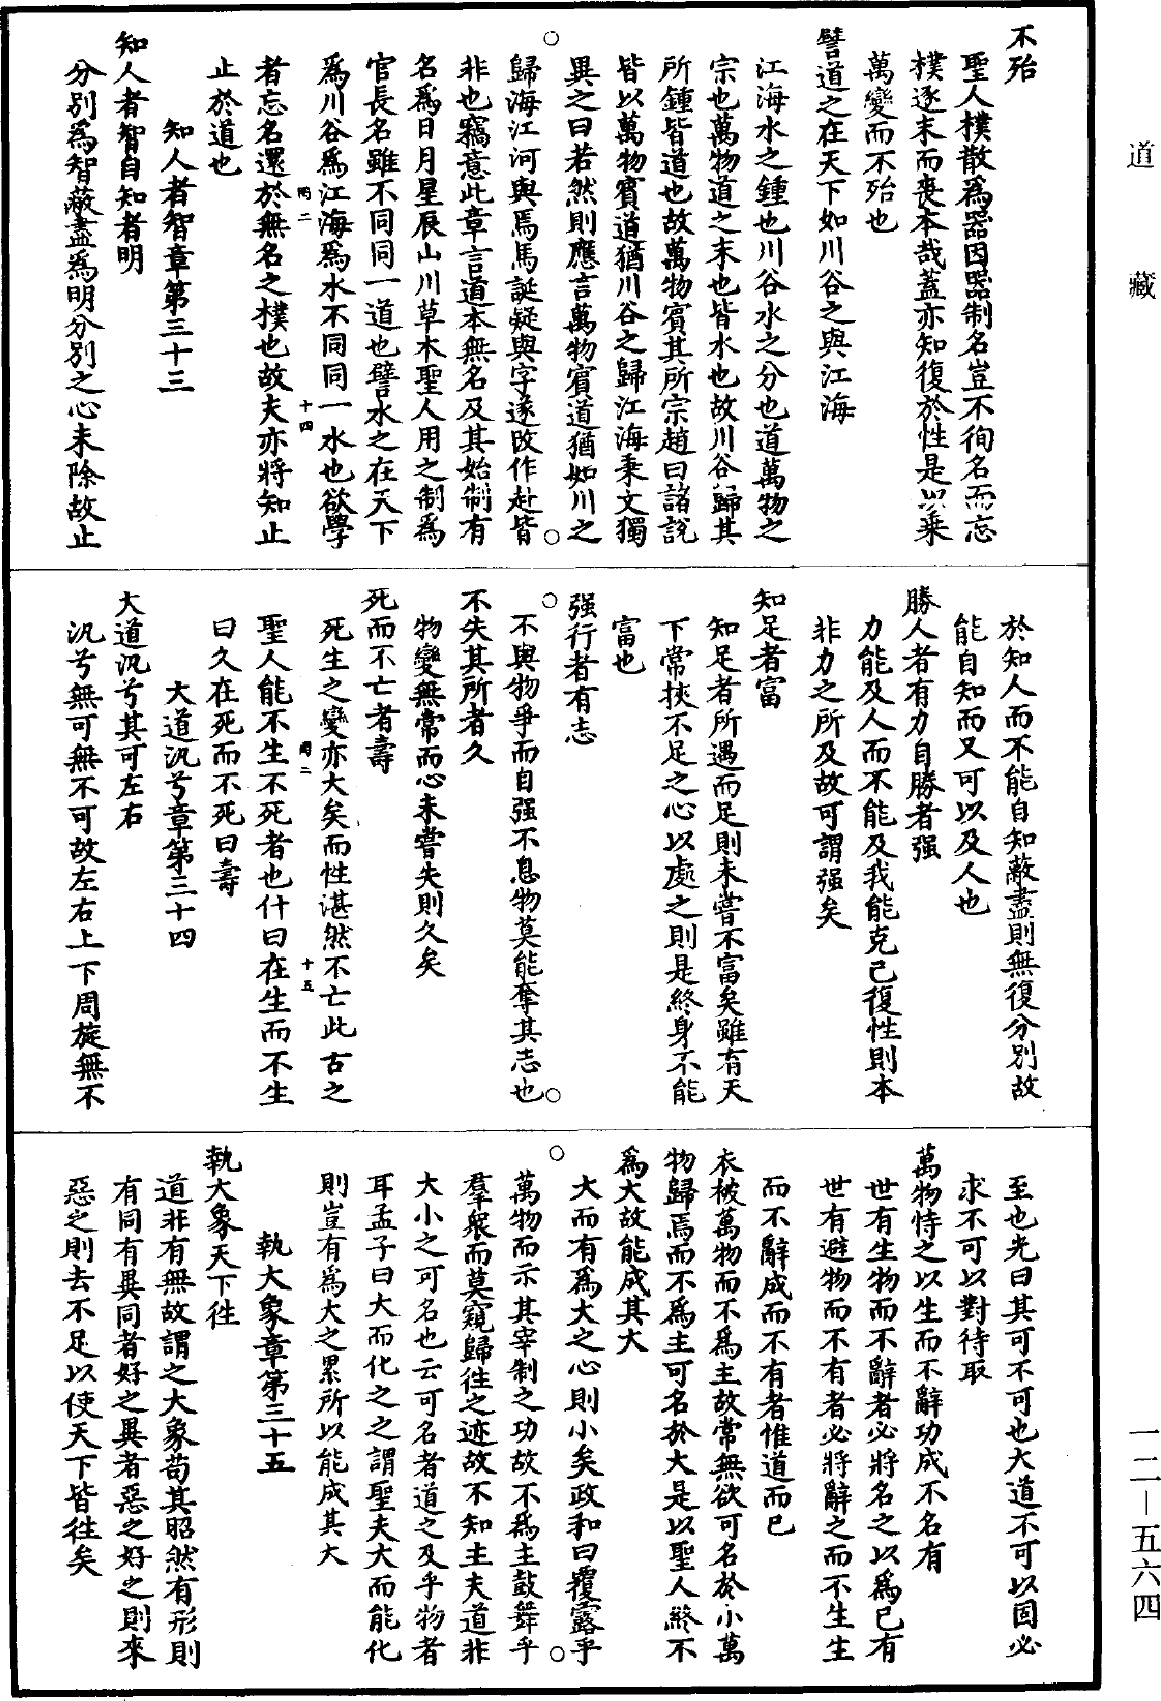 道藏
不殆
聖人樸散為器因器制名豈不徇名而忘
樸逐末而喪本哉蓋亦知復於性是以乘
萬變而不殆也
譬道之在天下如川谷之與江海
江海水之鍾也川谷水之分也道萬物之
宗也萬物道之末也皆水也故川谷歸其
所鍾皆道也故萬物賓其所宗趙曰諸說
皆以萬物賓道猶川谷之歸江海乘文獨
異之曰若然則應言萬物賓道猶如川之
歸海江河與焉馬誕疑與字遂改作赴皆
非也竊意此章言道本無名及其始制有
名為日月星辰山川草木聖人用之制為
官長名雖不同同一道也譬水之在天下
為川谷為江海為水不同同一水也欲學
罔二
十四
者忘名還於無名之樸也故夫亦將知止
止於道也
知人者智章第三十三
知人者智自知者明
分別為智蔽盡為明分別之心未除故止
於知人而不能自知蔽盡則無復分別故
能自知而又可以及人也
勝人者有力自勝者强
力能及人而不能及我能克己復性則本
非力之所及故可謂强矣
知足者富
知足者所遇而足則未嘗不富矣雖有天
下常挾不足之心以處之則是終身不能
富也
强行者有志
不與物爭而自强不息物莫能奪其志也
不失其所者久
物變無常而心未嘗失則久矣
死而不亡者壽
死生之變亦大矣而性湛然不亡此古之
罔二
十五
聖人能不生不死者也什曰在生而不生
曰久在死而不死曰壽
大道汎兮章第三十四
大道汎兮其可左右
汎兮無可無不可故左右上下周旋無不
至也光曰其可不可也大道不可以固必
求不可以對待取
萬物恃之以生而不辭功成不名有
世有生物而不辭者必將名之以為己有
世有避物而不有者必將辭之而不生生
而不辭成而不有者惟道而已
衣被萬物而不為主故常無欲可名於小萬
物歸焉而不為主可名於大是以聖人終不
為大故能成其大
大而有為大之心則小矣政和曰覆露乎
萬物而示其宰制之功故不為主鼓舞乎
羣衆而莫窺歸往之迹故不知主夫道非
大小之可名也云可名者道之及乎物者
耳孟子曰大而化之之謂聖夫大而能化
則豈有為大之累所以能成其大
執大象章第三十五
執大象天下往
道非有無故謂之大象苟其昭然有形則
有同有異同者好之異者惡之好之則來
惡之則去不足以使天下皆往矣
一二—五六四